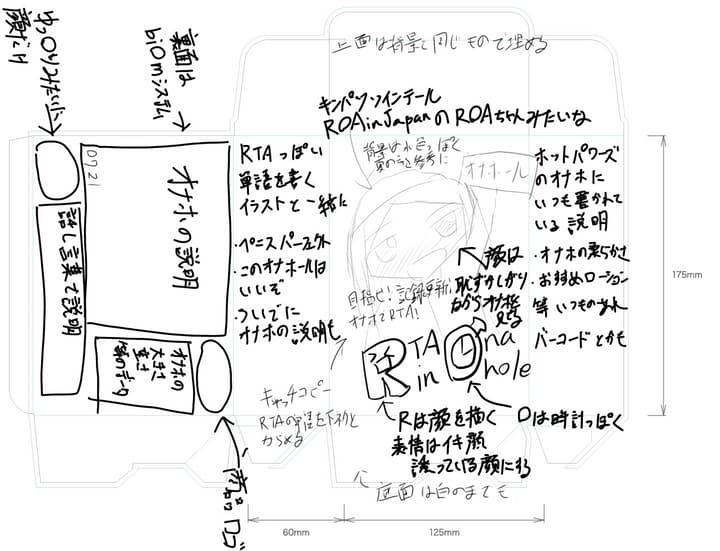 上面は背景と同じもので埋める
キンパツツインテール
ROAinJapanのROAちゃんみたいな
裏面は
biimシステム
頭だけ
0721
オナホの説明
話し言葉で説明
オナホの
大きさ
重さ
等のデータ
商品ロゴ
RTAっぽい
単語を書く
イラストと一緒に
・ペニスパーフェクト
・このオナホールは
いいぞ
・ついでに
オナホの説明も
オナホール
ホットパワーズ
のオナホに
いつも書かれて
いる説明
・オナホの柔らかさ
・おすすめローション
等いつものあれ
バーコードとかも
顔は
恥ずかしがり
ながら
目指せ!記録更新!
オナホでRTA!
RTA
in
Ona
hole
キャッチコピー
RTAの単語を下ネタと
からめる
Rは顔を描く
表情はイキ顔
誘っている顔にする
Oは時計っぽく
底面は白のままでも
175mm
60mm
125mm